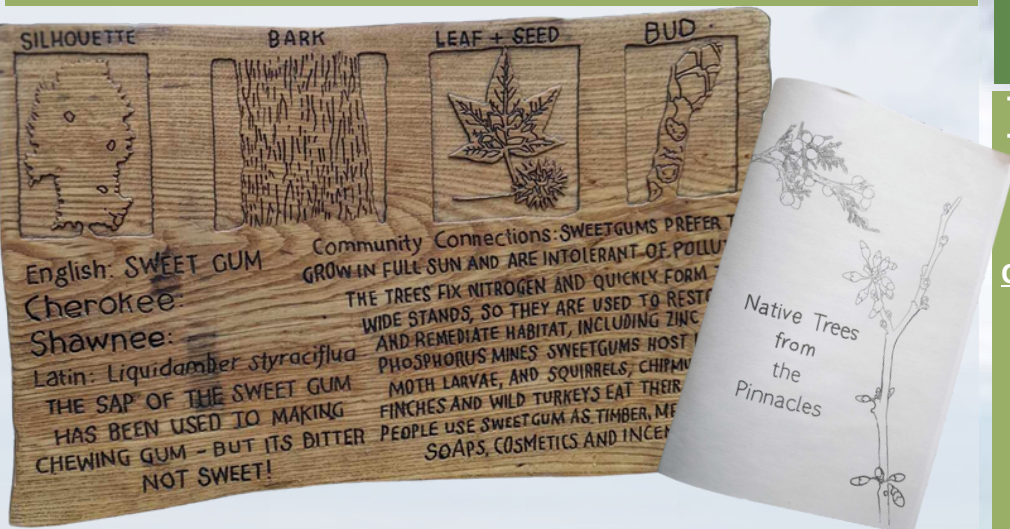 SILHOUETTE
BARK
LEAF + SEED
BUD
English: SWEET GUM
Cherokee:
Shawnee:
Latin: Liquidamber styraciflua
THE SAP OF THE SWEET GUM
HAS BEEN USED TO MAKING
CHEWING GUM - BUT ITS BITTER
NOT SWEET!
Community Connections: SWEETGUMS PREFER
GROW IN FULL SUN AND ARE INTOLERANT OF
THE TREES FIX NITROGEN AND QUICKLY FORM
WIDE STANDS, SO THEY ARE USED TO
AND REMEDIATE HABITAT, INCLUDING ZINC
PHOSPHORUS MINES SWEETGUMS HOST
MOTH LARVAE, AND SQUIRRELS,
FINCHES AND WILD TURKEYS EAT THEIR
PEOPLE USE SWEETGUM AS TIMBER,
SOAPS, COSMETICS AND
Native Trees
from
the
Pinnacles